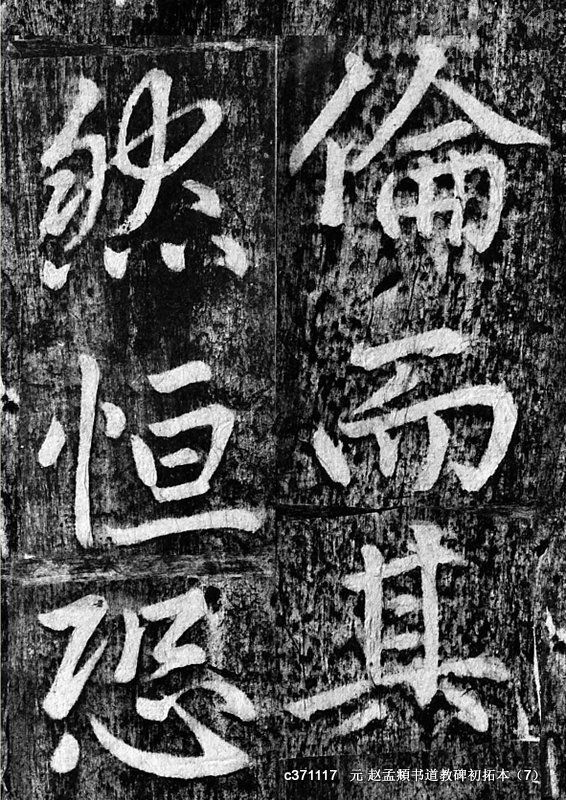 倫而其
然恒恐
c371117 元 赵孟頫书道教碑初拓本（7）